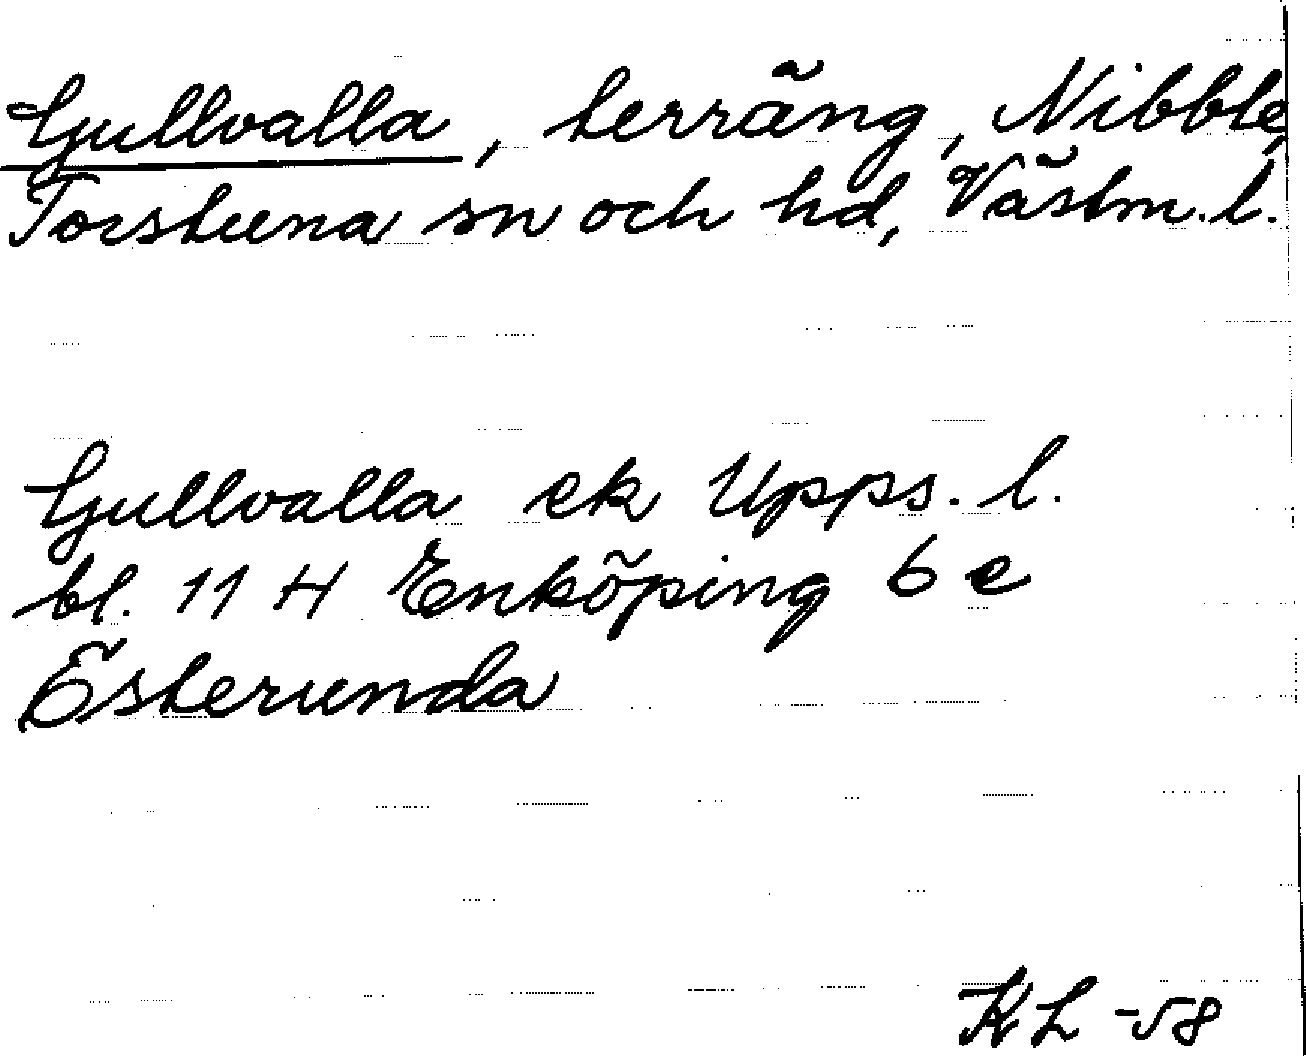 Gullvalla, terräng, Nibble,
Torstuna sn och hd, Västm.l.
Gullvalla ek Upps. l.
bl. 11 H Enköping 6 e
Österunda
KL -58